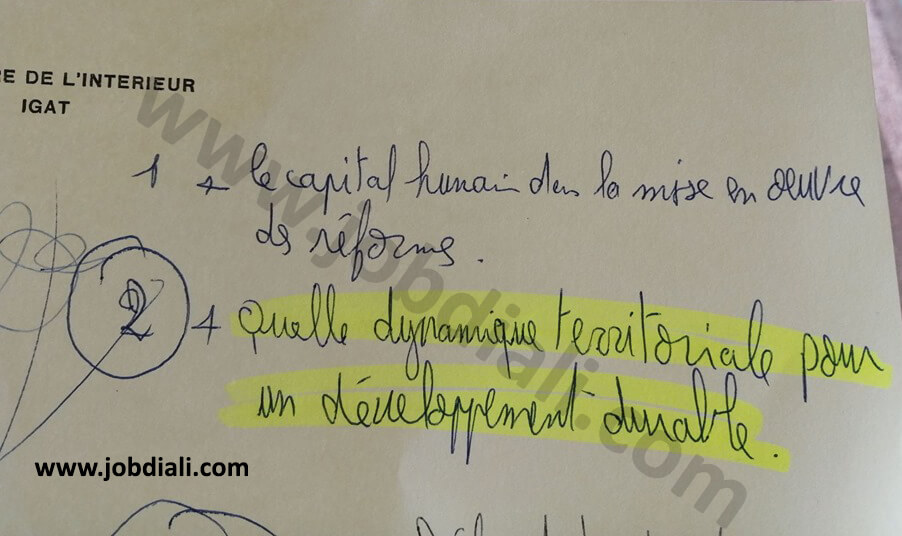 RE DE L'INTERIEUR
IGAT
1 + le capital humain dans la mise en oeuvre
des réformes.
2 + Quelle dynamique territoriale pour
un développement durable.
www.jobdiali.com
www.jobdiali.com